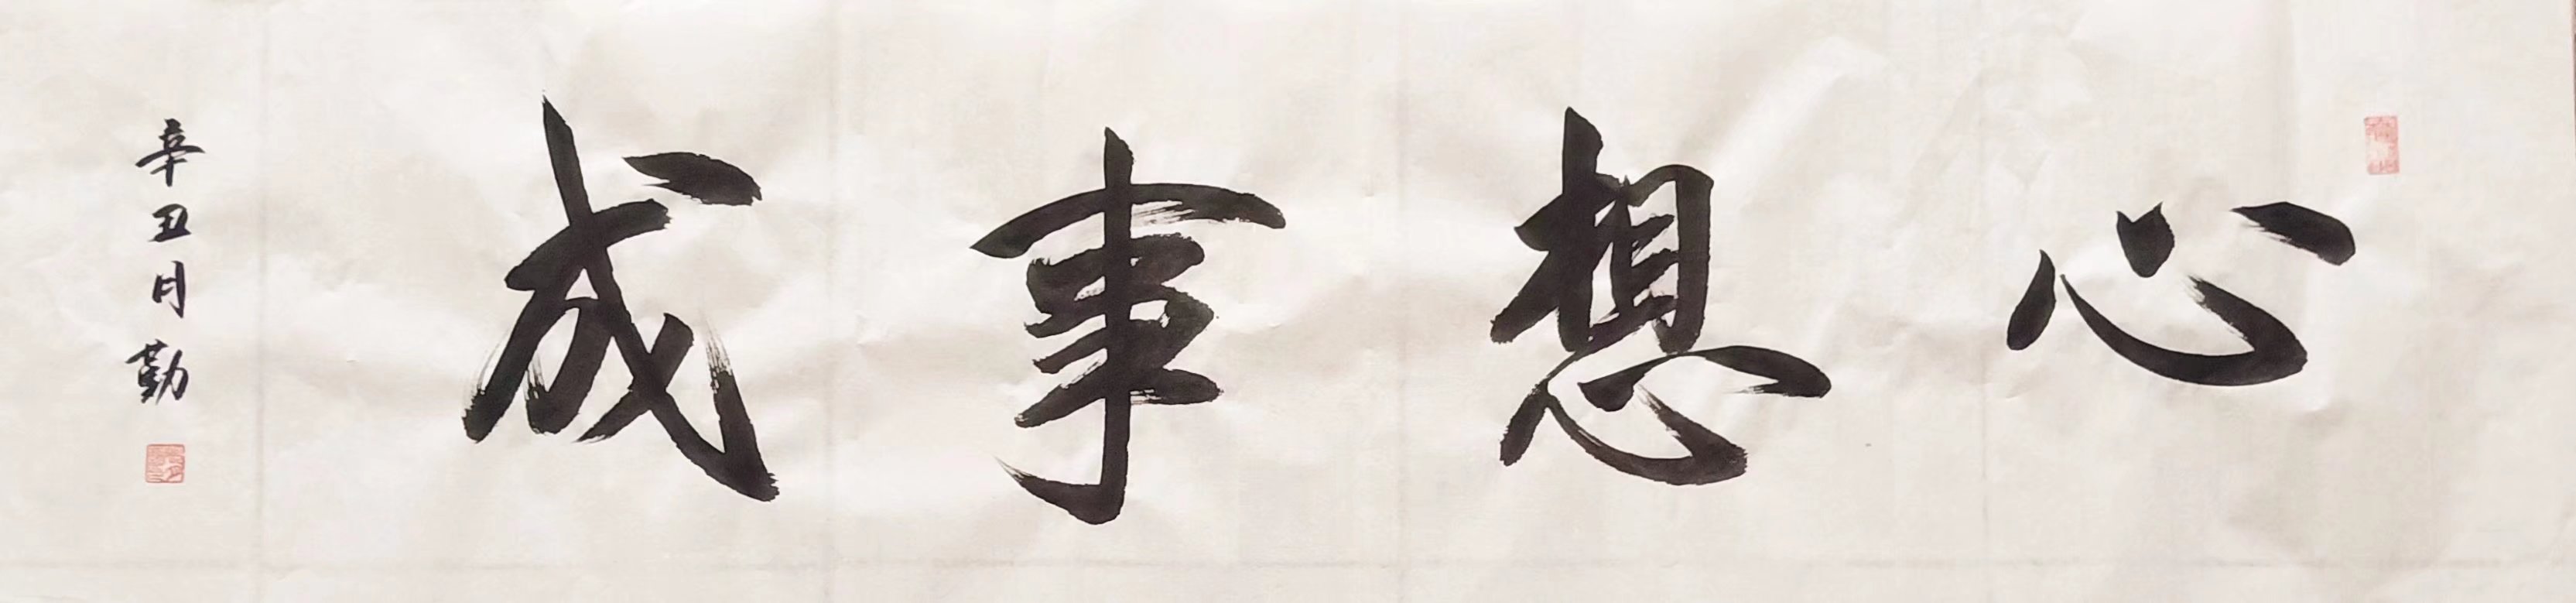 心想事成
辛丑月勤